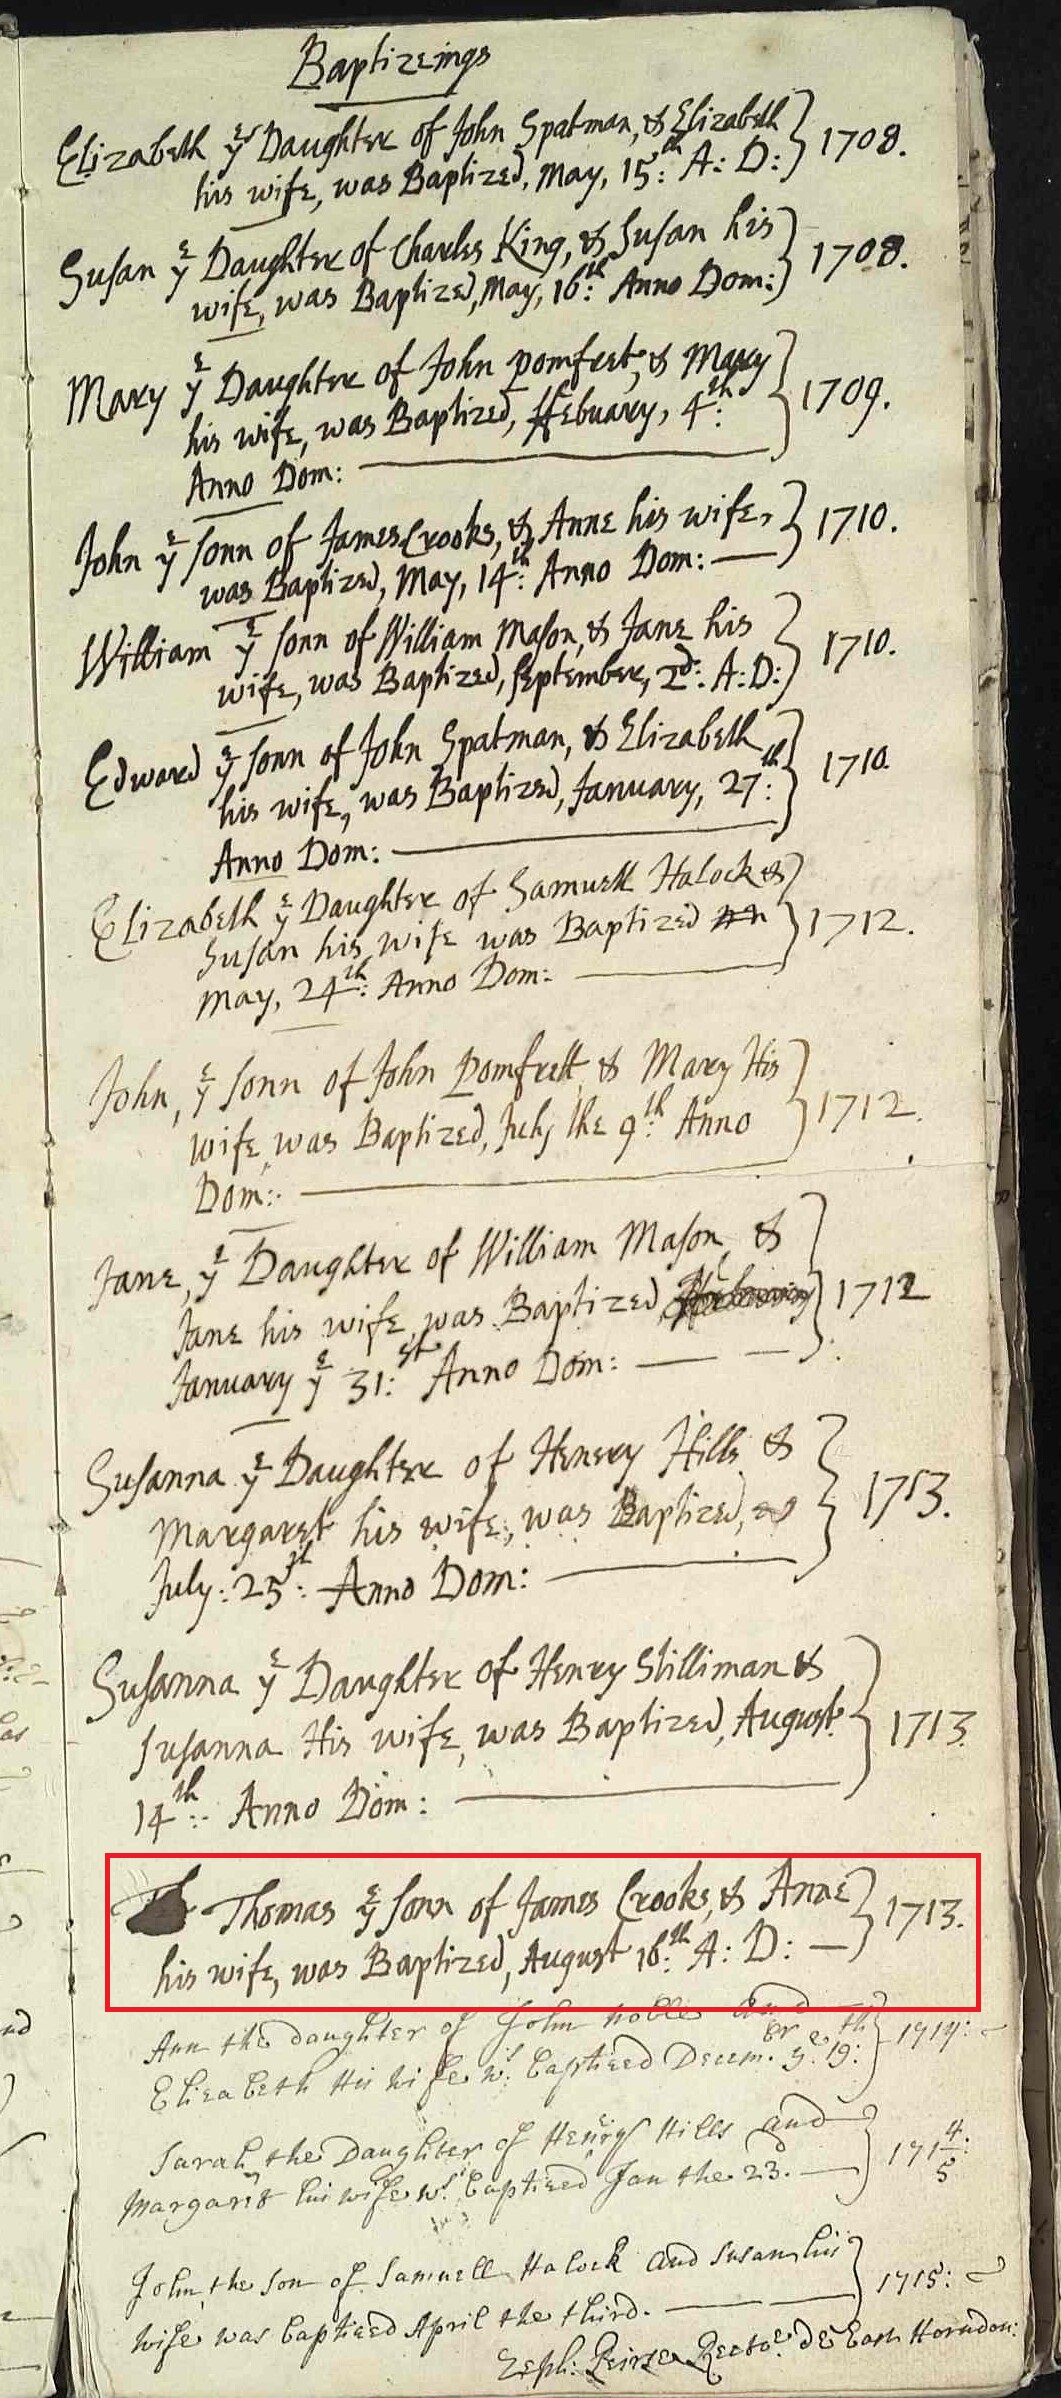 Baptizeings
Elizabeth yᵉ Daughter of John Spatman, & Elizabeth
his wife, was Baptized, May, 15:ᵗʰ A: D: } 1708.
Susan yᵉ Daughter of Charles King, & Susan his
wife, was Baptized, May, 16:ᵗʰ Anno Dom: } 1708.
Mary yᵉ Daughter of John pomfret, & Mary
his wife, was Baptized, ffebuary, 4:ᵗʰ } 1709.
Anno Dom:
John yᵉ sonn of James Crooks, & Anne his wife,
was Baptized, May, 14:ᵗʰ Anno Dom: } 1710.
William yᵉ sonn of William Mason, & Jane his
wife, was Baptized, September, 2ᵈ: A: D: } 1710.
Edward yᵉ sonn of John Spatman, & Elizabeth
his wife, was Baptized, January, 27:ᵗʰ } 1710.
Anno Dom:
Elizabeth yᵉ Daughter of Samuell Halock &
Susan his wife was Baptized } 1712.
May, 24:ᵗʰ Anno Dom:
John, yᵉ sonn of John Pomfrett & Mary His
wife, was Baptized, July the 9:ᵗʰ Anno } 1712.
Dom:
Jane, yᵉ Daughter of William Mason, &
Jane his wife, was Baptized } 1712
January yᵉ 31:ˢᵗ Anno Dom:
Susanna yᵉ Daughter of Henery Hills &
Margaret his wife, was Baptized, } 1713.
July: 25:ᵗʰ Anno Dom:
Susanna yᵉ Daughter of Henry Stilliman &
Susanna His wife, was Baptized, August } 1713.
14:ᵗʰ Anno Dom:
Th Thomas yᵉ sonn of James Crooks, & Anne
his wife, was Baptized, August 16:ᵗʰ A: D: } 1713.
Ann the daughter of John Noble and
Elizabeth His wife wˢ. baptized Decem.ᵇᵉʳ yᵉ 19:ᵗʰ } 1714:
Sarah the Daughter of Henry Hills and
Margaret his wife wˢ. baptized Jan the 23. } 171 4/5:
John the son of Samuell Halock and Susan his
wife was baptized April the third. } 1715:
Zeph: Peirse Rector de East Horndon: